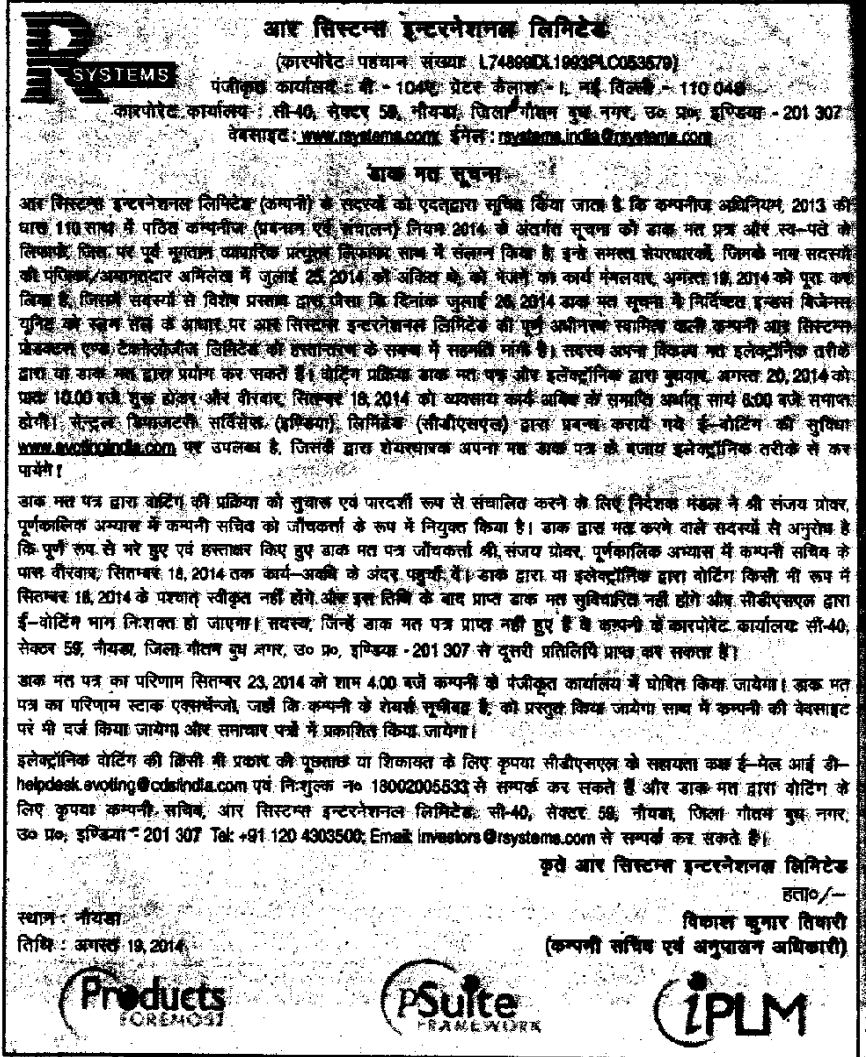 R
SYSTEMS
आर सिस्टम्स इन्टरनेशनल लिमिटेड
(कारपोरेट पहचान संख्या L74899DL1993PLC053579)
पंजीकृत कार्यालय : बी - 104ए, ग्रेटर कैलाश - I, नई दिल्ली - 110 048
कारपोरेट कार्यालय : सी-40, सेक्टर 59, नौयडा, जिला गौतम बुध नगर, उ० प्र०, इण्डिया - 201 307
वेबसाइट : www.rsystems.com; ईमेल : rsystems.india@rsystems.com
डाक मत सूचना
आर सिस्टम्स इन्टरनेशनल लिमिटेड (कम्पनी) के सदस्यों को एतद्द्वारा सूचित किया जाता है कि कम्पनीज अधिनियम, 2013 की
धारा 110 साथ में पठित कम्पनीज (प्रबन्धन एवं संचालन) नियम 2014 के अंतर्गत सूचना को डाक मत पत्र और स्व-पते के
लिफाफे, जिस पर पूर्व भुगतान व्यापारिक प्रत्युत्तर लिफाफा साथ में संलग्न किया है, इन्हे समस्त शेयरधारकों, जिनके नाम सदस्यों
की पंजिका/अमानतदार अभिलेख में जुलाई 25, 2014 को अंकित थे, को भेजने का कार्य मंगलवार, अगस्त 19, 2014 को पूरा कर
लिया है, जिसमें सदस्यों से विशेष प्रस्ताव द्वारा जैसा कि दिनांक जुलाई 26, 2014 डाक मत सूचना में निर्दिष्टत इन्डस बिजेनस
यूनिट को स्लम सेल के आधार पर आर सिस्टम्स इन्टरनेशनल लिमिटेड की पूर्ण अधीनस्थ स्वामित्व वाली कम्पनी आर सिस्टम्स
प्रोडक्टस एण्ड टेक्नोलोजीज लिमिटेड को हस्तान्तरण के सम्बन्ध में सहमति मांगी है। सदस्य अपना विकल्प मत इलेक्ट्रॉनिक तरीके
द्वारा या डाक मत द्वारा प्रयोग कर सकते हैं। वोटिंग प्रक्रिया डाक मत पत्र और इलेक्ट्रॉनिक द्वारा बुधवार, अगस्त 20, 2014 को
प्रातः 10.00 बजे शुरू होकर और वीरवार, सितम्बर 18, 2014 को व्यवसाय कार्य अवधि के समाप्ति अर्थात् सायं 6:00 बजे समाप्त
होगी। सेन्ट्रल डिपाजटरी सर्विसेस (इण्डिया) लिमिटेड (सीडीएसएल) द्वारा प्रबन्ध कराये गये ई-वोटिंग की सुविधा
www.evotingindia.com पर उपलब्ध है, जिसके द्वारा शेयरधारक अपना मत डाक पत्र के बजाय इलेक्ट्रॉनिक तरीके से कर
पायेंगे।
डाक मत पत्र द्वारा वोटिंग की प्रक्रिया को सुचारू एवं पारदर्शी रूप से संचालित करने के लिए निदेशक मंडल ने श्री संजय ग्रोवर,
पूर्णकालिक अभ्यास में कम्पनी सचिव को जाँचकर्त्ता के रूप में नियुक्त किया है। डाक द्वारा मत करने वाले सदस्यों से अनुरोध है
कि पूर्ण रूप से भरे हुए एवं हस्ताक्षर किए हुए डाक मत पत्र जाँचकर्त्ता श्री संजय ग्रोवर, पूर्णकालिक अभ्यास में कम्पनी सचिव के
पास वीरवार, सितम्बर 18, 2014 तक कार्य-अवधि के अंदर पहुचाँ दें। डाक द्वारा या इलेक्ट्रॉनिक द्वारा वोटिंग किसी भी रूप में
सितम्बर 18, 2014 के पश्चात् स्वीकृत नहीं होंगे और इस तिथि के बाद प्राप्त डाक मत सुविचारित नहीं होंगे और सीडीएसएल द्वारा
ई-वोटिंग भाग निःशक्त हो जाएगा। सदस्य, जिन्हें डाक मत पत्र प्राप्त नहीं हुए हैं वे कम्पनी के कारपोरेट कार्यालयः सी-40,
सेक्टर 59, नौयडा, जिला गौतम बुध नगर, उ० प्र०, इण्डिया - 201 307 से दूसरी प्रतिलिपि प्राप्त कर सकता हैं।
डाक मत पत्र का परिणाम सितम्बर 23, 2014 को शाम 4.00 बजे कम्पनी के पंजीकृत कार्यालय में घोषित किया जायेगा। डाक मत
पत्र का परिणाम स्टाक एक्सचेंन्जो, जहाँ कि कम्पनी के शेयर्स सूचीबद्ध हैं, को प्रस्तुत किया जायेगा साथ में कम्पनी की वेबसाइट
पर भी दर्ज किया जायेगा और समाचार पत्रों में प्रकाशित किया जायेगा।
इलेक्ट्रॉनिक वोटिंग की किसी भी प्रकार की पूछताछ या शिकायत के लिए कृपया सीडीएसएल के सहायता कक्ष ई-मेल आई डी-
helpdesk.evoting@cdslindia.com एवं निःशुल्क न० 18002005533 से सम्पर्क कर सकते हैं और डाक मत द्वारा वोटिंग के
लिए कृपया कम्पनी सचिव, आर सिस्टम्स इन्टरनेशनल लिमिटेड, सी-40, सेक्टर 59, नौयडा, जिला गौतम बुध नगर,
उ० प्र०, इण्डिया - 201 307 Tel: +91 120 4303500; Email: investors@rsystems.com से सम्पर्क कर सकते हैं।
कृते आर सिस्टम्स इन्टरनेशनल लिमिटेड
हता०/-
स्थान : नौयडा
विकाश कुमार तिवारी
तिथि : अगस्त 19, 2014
(कम्पनी सचिव एवं अनुपालन अधिकारी)
Products
FOREMOST
pSuite
FRAMEWORK
iPLM